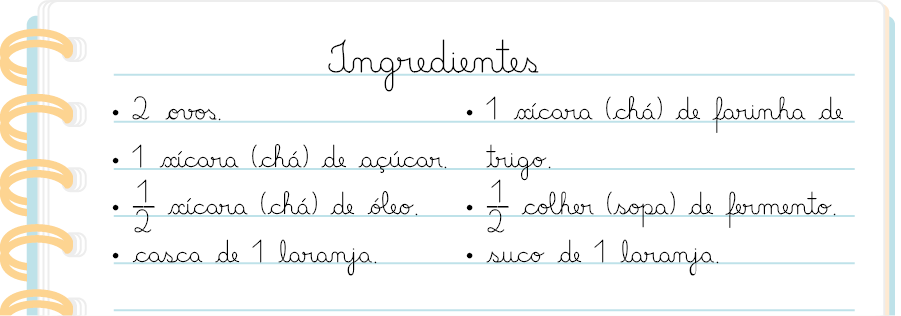 Ingredientes
• 2 ovos.
• 1 xícara (chá) de açúcar.
• 1/2 xícara (chá) de óleo.
• casca de 1 laranja.
• 1 xícara (chá) de farinha de
trigo.
• 1/2 colher (sopa) de fermento.
• suco de 1 laranja.